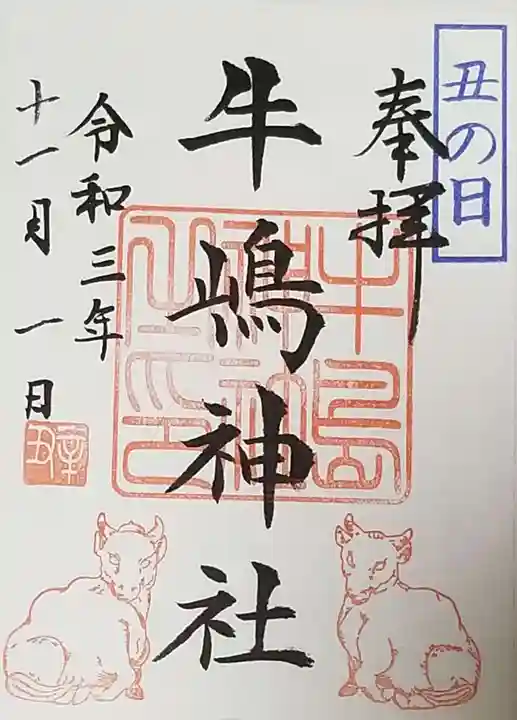 丑の日
奉拝
牛嶋神社
令和三年
十一月一日
辛丑
牛嶋神社之印